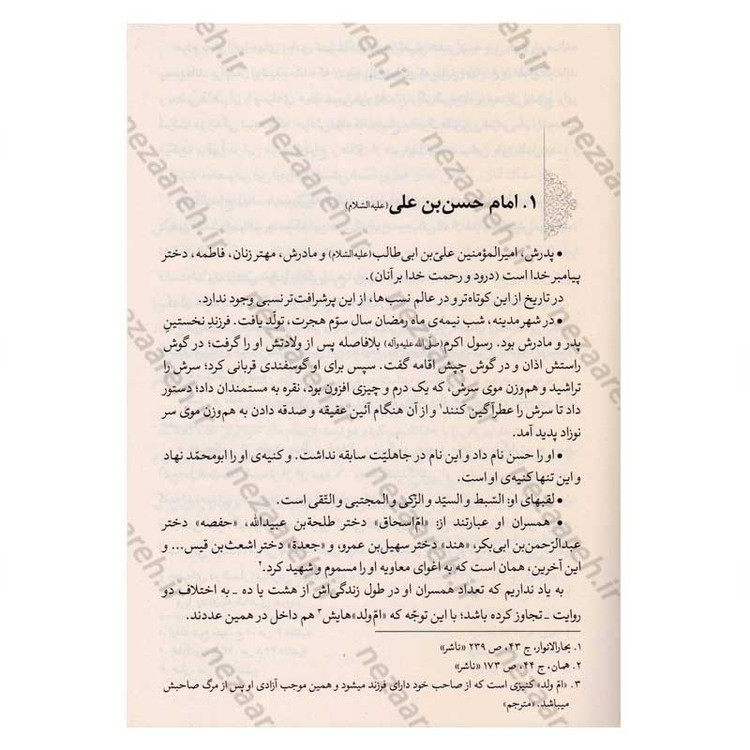 ۱. امام حسن‌بن علی (علیه السّلام)
• پدرش، امیرالمؤمنین علیّ‌بن ابی‌طالب (علیه السّلام) و مادرش، مهتر زنان، فاطمه، دختر
پیامبر خدا است (درود و رحمت خدا بر آنان).
در تاریخ از این کوتاه‌تر و در عالم نسب‌ها، از این پرشرافت‌تر نسبی وجود ندارد.
• در شهر مدینه، شب نیمه‌ی ماه رمضان سال سوّم هجرت، تولّد یافت. فرزندِ نخستینِ
پدر و مادرش بود. رسول اکرم (صلّی الله علیه وآله) بلافاصله پس از ولادتش او را گرفت؛ در گوش
راستش اذان و در گوش چپش اقامه گفت. سپس برای او گوسفندی قربانی کرد؛ سرش را
تراشید و هم‌وزن موی سرش، که یک درم و چیزی افزون بود، نقره به مستمندان داد؛ دستور
داد تا سرش را عطرآگین کنند۱ و از آن هنگام آئین عقیقه و صدقه دادن به هم‌وزن موی سر
نوزاد پدید آمد.
• او را حسن نام داد و این نام در جاهلیّت سابقه نداشت. و کنیه‌ی او را ابومحمّد نهاد
و این تنها کنیه‌ی او است.
• لقبهای او: السّبط و السیّد و الزّکی و المجتبی و التّقی است.
• همسران او عبارتند از: «امّ‌اسحاق» دختر طلحة‌بن عبیدالله، «حفصه» دختر
عبدالرّحمن‌بن ابی‌بکر، «هند» دختر سهیل‌بن عمرو، و «جعدة» دختر اشعث‌بن قیس... و
این آخرین، همان است که به اغوای معاویه او را مسموم و شهید کرد.۲
به یاد نداریم که تعداد همسران او در طول زندگی‌اش از هشت یا ده ـ به اختلاف دو
روایت ـ تجاوز کرده باشد؛ با این توجّه که «امّ‌ولد»هایش۳ هم داخل در همین عددند.
۱. بحارالانوار، ج ۴۳، ص ۲۳۹ «ناشر»
۲. همان، ج ۴۴، ص ۱۷۳ «ناشر»
۳. «امّ ولد» کنیزی است که از صاحب خود دارای فرزند میشود و همین موجب آزادی او پس از مرگ صاحبش
میباشد. «مترجم»
nezaareh.ir